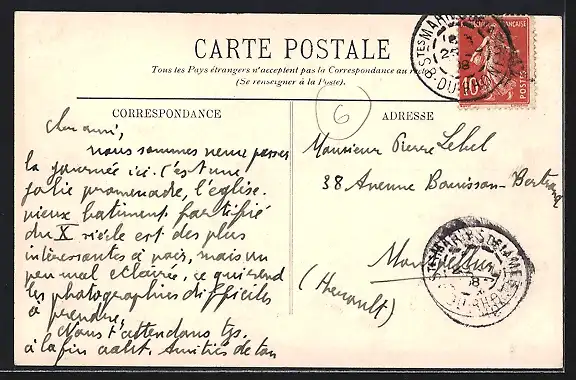 CARTE POSTALE
Tous les Pays étrangers n'acceptent pas la Correspondance au recto
(Se renseigner à la Poste).
6
CORRESPONDANCE
Cher ami,
nous sommes venus passer
la journée ici. C'est une
jolie promenade, l'église.
vieux batiment fortifié
du X siècle est des plus
intéressantes à voir, mais un
peu mal eclairée, ce qui rend
les photographies difficiles
à prendre.
Nous t'attendons tjs.
à la fin août. Amitiés de ton
ADRESSE
Monsieur Pierre Lebel
38 Avenue Bouisson-Bertrand
Montpellier
(Herault)
STES MARIES DE LA MER
10
POSTES